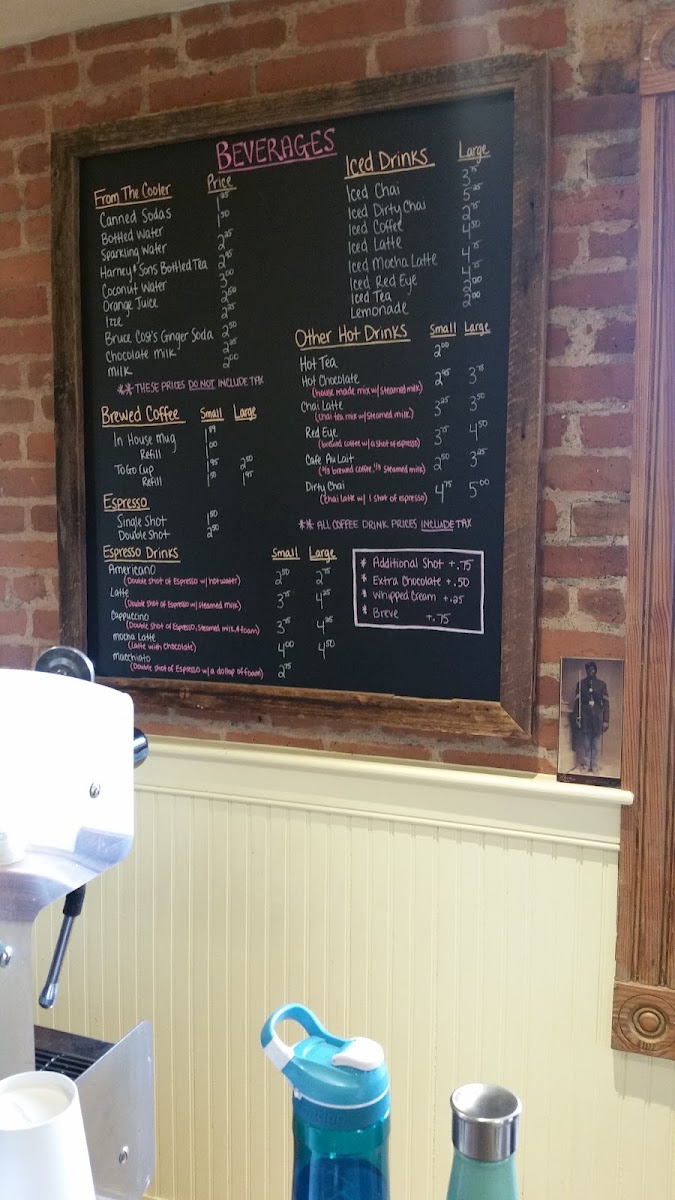 BEVERAGES
From The Cooler Price
Canned Sodas
Bottled Water 1 50
Sparkling Water
Harney & Sons Bottled Tea
Coconut Water 3 00
Orange Juice 2 50
Izze
Bruce Cost's Ginger Soda 2 50
Chocolate milk
milk 2 00
** THESE PRICES DO NOT INCLUDE TAX
Brewed Coffee Small Large
In House Mug 1 89
Refill 1 00
To Go Cup 1 95 2 50
Refill 1 50 1 95
Espresso
Single Shot 1 50
Double Shot 2 50
Espresso Drinks Small Large
Americano 2 50 2 75
(Double shot of Espresso w/ hot water)
Latte 3 75 4 25
(Double shot of Espresso w/ steamed milk)
Cappuccino 3 75 4 25
(Double shot of Espresso, Steamed milk, & foam)
mocha Latte 4 00 4 50
(Latte with chocolate)
macchiato 2 75
(Double shot of Espresso w/ a dollop of foam)
Iced Drinks Large
Iced Chai 3 75
Iced Dirty Chai 5 25
Iced Coffee 2 75
Iced Latte 4 50
Iced Mocha Latte 4 75
Iced Red Eye 4 75
Iced Tea 2 00
Lemonade 2 00
Other Hot Drinks Small Large
Hot Tea 2 00
Hot Chocolate 2 95 3 75
(house made mix w/ steamed milk)
Chai Latte 3 25 3 50
(chai tea mix w/ steamed milk)
Red Eye 3 75 4 50
(brewed coffee w/ a shot of espresso)
Cafe Au Lait 2 50 3 25
(2/3 brewed coffee, 1/3 steamed milk)
Dirty Chai 4 75 5 00
(Chai latte w/ 1 shot of espresso)
** ALL COFFEE DRINK PRICES INCLUDE TAX
* Additional Shot +.75
* Extra Chocolate +.50
* Whipped Cream +.25
* Breve +.75